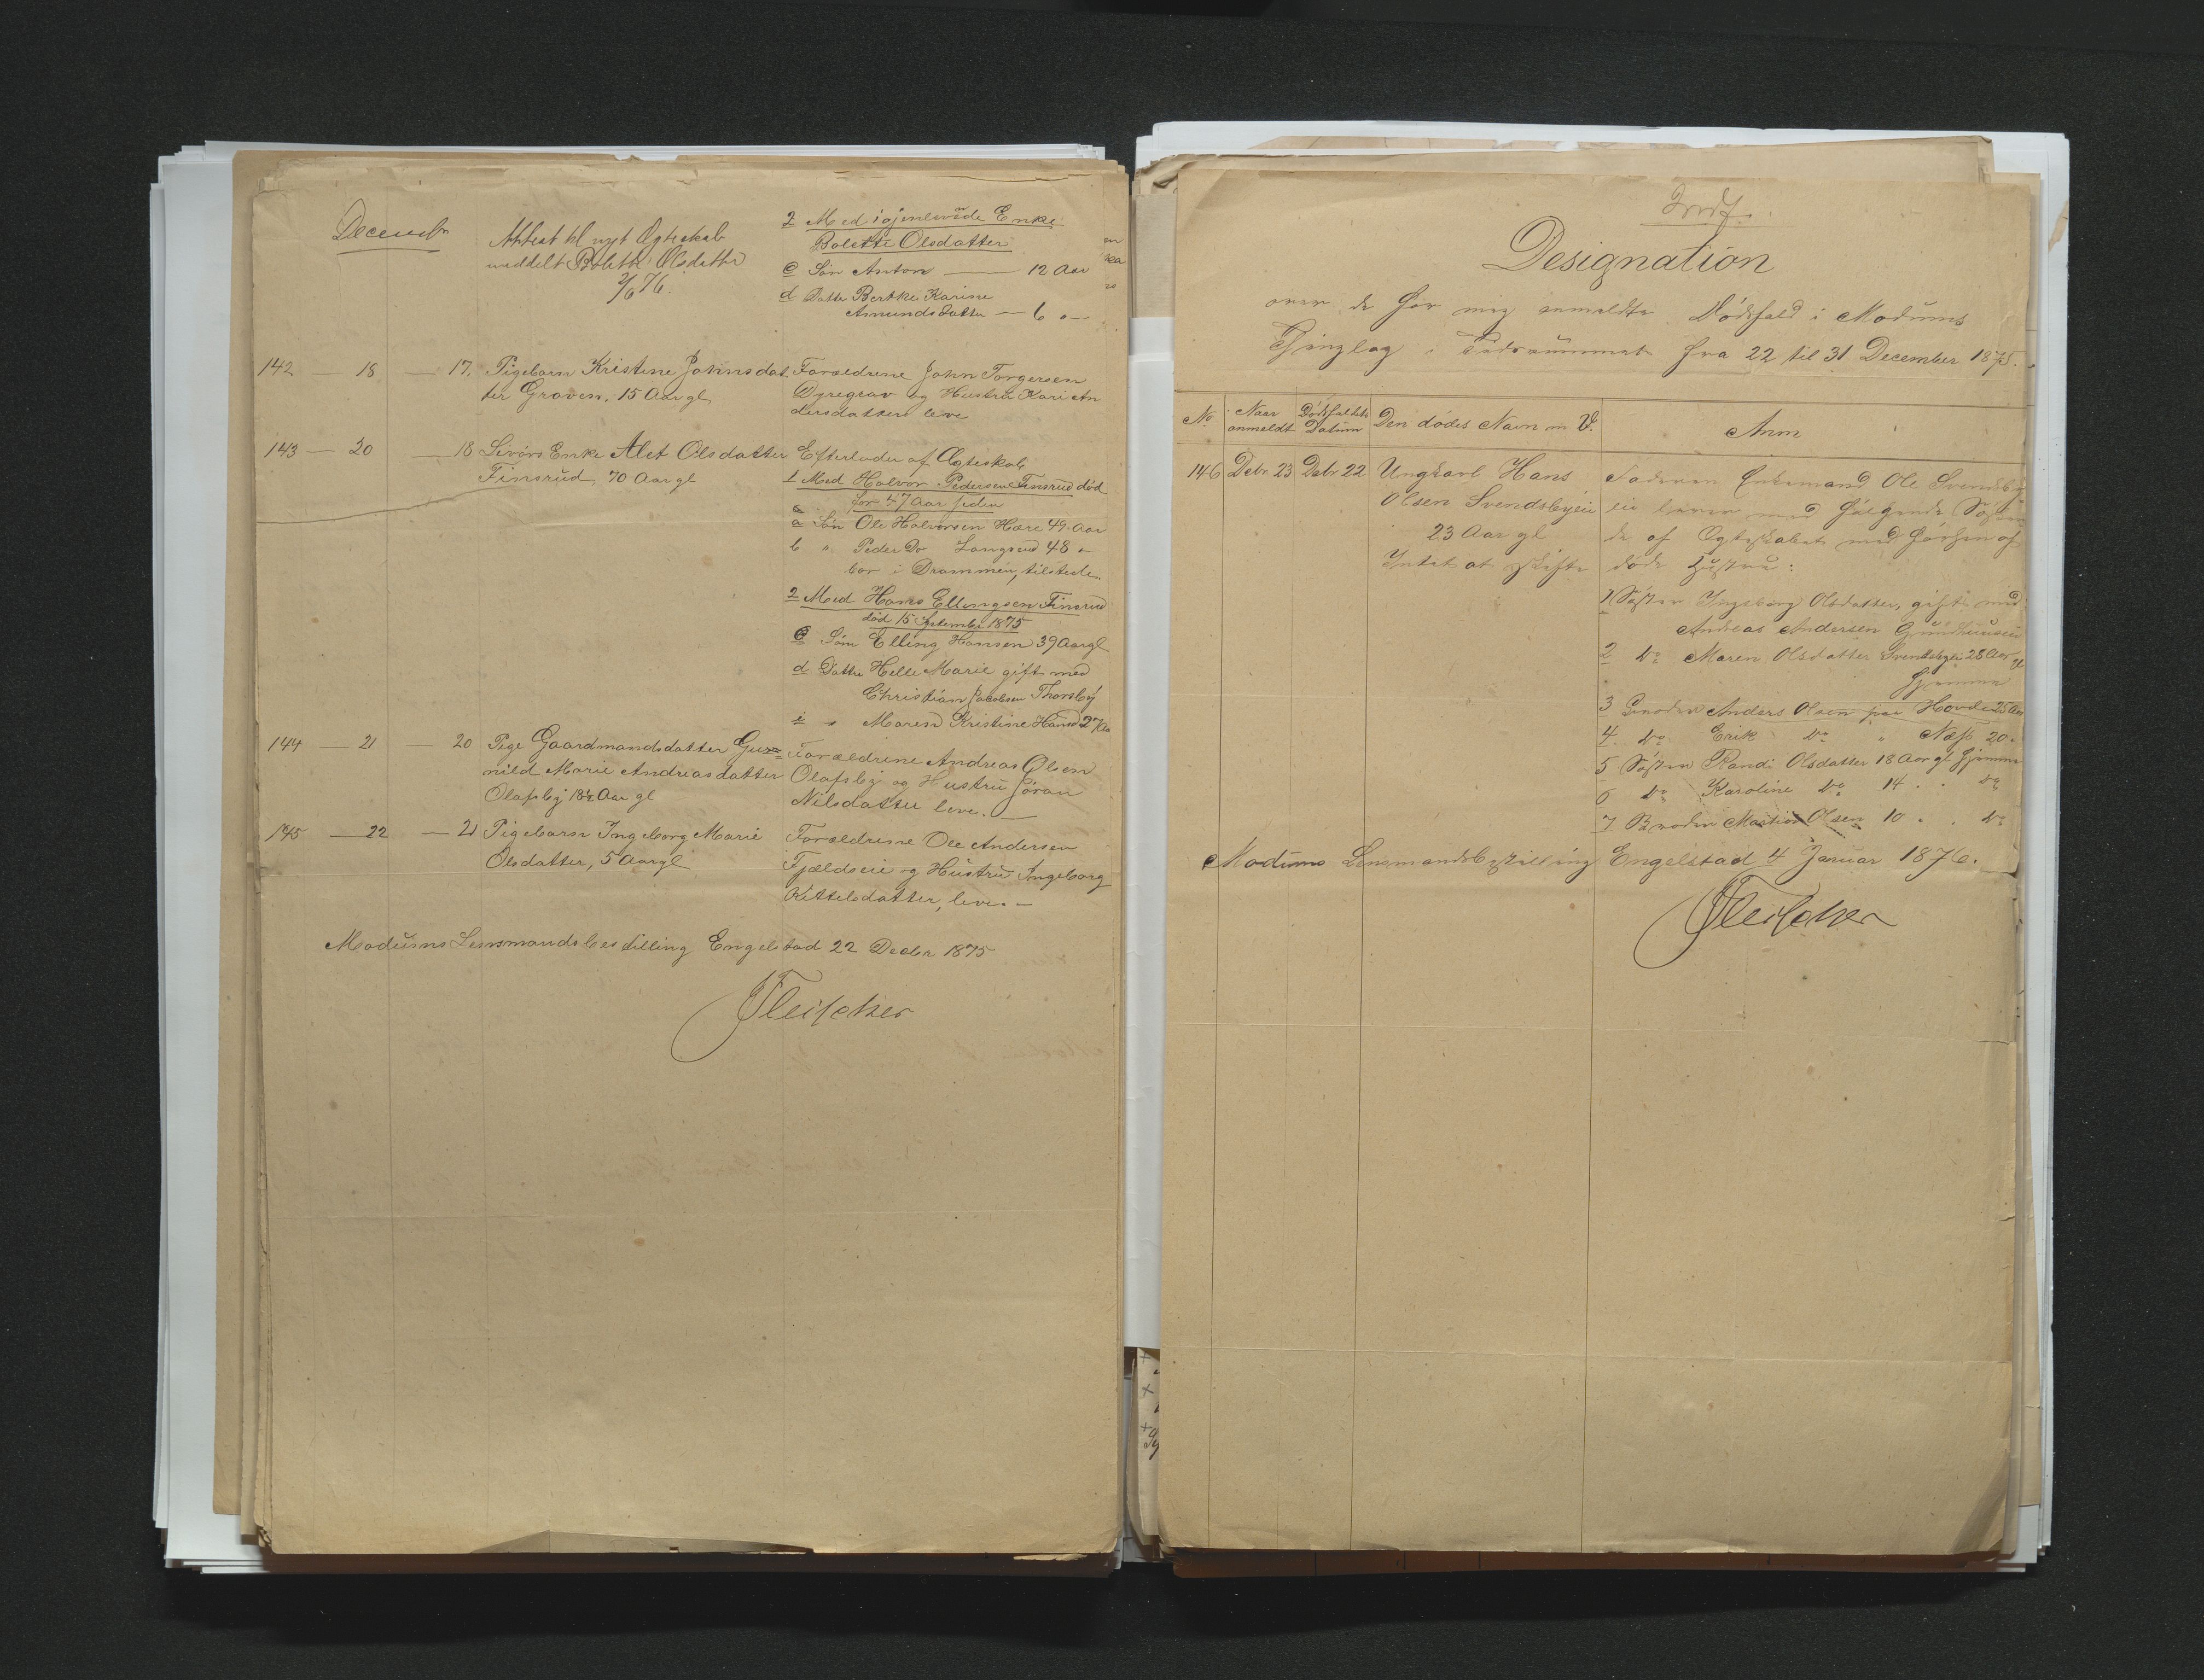 Decembr
Attest til nyt Ægteskab
meddelt Bolette Olsdatter
2/6 76.
2 Med igjenlevende Enke
Bolette Olsdatter
c Søn Anton — 12 Aar
d Datter Berthe Karine
Amundsdatter — 6 "
142 — 18 — 17. Pigebarn Kristine Johnsdat
ter Graven, 15 Aar gl
Forældrene John Torgersen
Dyregrav og Hustru Kari An
dersdatter leve
143 — 20 — 18 Livørs Enke Alet Olsdatter
Finsrud, 70 Aar gl
Efterlader af Ægteskab
1 Med Halvor Pedersen Finsrud død
for 47 Aar siden
a Søn Ole Halvorsen Hære 49 Aar
b " Peder Do Langrud 48 "
bor i Drammen, tilstede.
2 Med Hans Ellingsen Finsrud
død 15 September 1875
c Søn Elling Hansen 39 Aar gl
d Datter Helle Marie gift med
Christian Jacobsen Thorsby
" Maren Kristine Hansd 27 Aar
144 — 21 — 20 Pige Gaardmandsdatter Gu
nild Marie Andreasdatter
Olafsby 18½ Aar gl
Forældrene Andreas Olsen
Olafsby og Hustru Jøran
Nilsdatter leve. —
145 — 22 — 21 Pigebarn Ingeborg Marie
Olsdatter, 5 Aar gl
Forældrene Ole Andersen
Fjældseie og Hustru Ingeborg
Kittelsdatter, leve. —
Modums Lensmandsbestilling Engelstad 22 Decbr 1875
Fleischer
Designation
over de for mig anmeldte Dødsfald i Modums
Thinglag i Tidsrummet fra 22 til 31 December 1875.
No
Naar
anmeldt
Dødsfaldets
Datum
Den dødes Navn m V.
Anm
146 Debr. 23 Debr 22 Ungkarl Hans
Olsen Svendsbyeie
23 Aar gl
Intet at skifte
Faderen Enkemand Ole Svendsby
eie lever med følgende Søsken
de af Ægteskabet med før sin af
døde Hustru:
1 Søster Ingeborg Olsdatter, gift med
Andreas Andersen
2 Do Maren Olsdatter Svendsbyeie 28 Aar gl
hjemme
3 Broder Anders Olsen paa Hovde 25 Aar
4. Do Erik Do " Næs 20 "
5 Søster Randi Olsdatter 18 Aar gl hjemme
6 Do Karoline Do 14 . . Do
7 Broder Martin Olsen 10 . . Do
Modums Lensmandsbestilling Engelstad 4 Januar 1876.
Fleischer